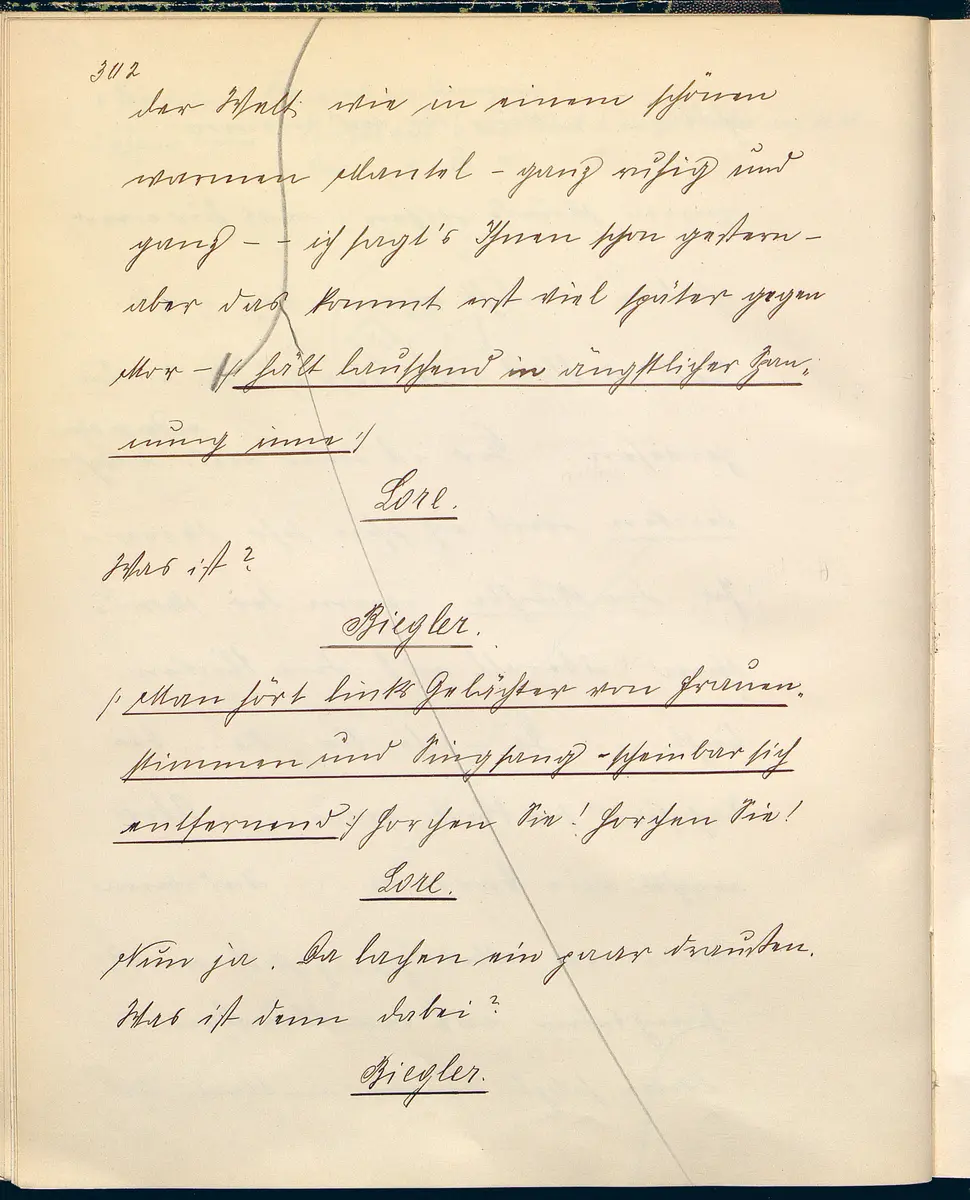 302
der Welt wie in einem schönen
warmen Mantel - ganz ruhig und
ganz - - ich sagt's Ihnen schon gestern -
aber das kommt erst viel später gegen
Mor - /: hält lauschend in ängstlicher Span-
nung inne :/
Lore.
Was ist?
Biegler.
/: Man hört links Gelächter von Frauen-
stimmen und Singsang - scheinbar sich
entfernend :/ Horchen Sie! Horchen Sie!
Lore.
Nun ja. Da lachen ein paar draußen.
Was ist denn dabei?
Biegler.